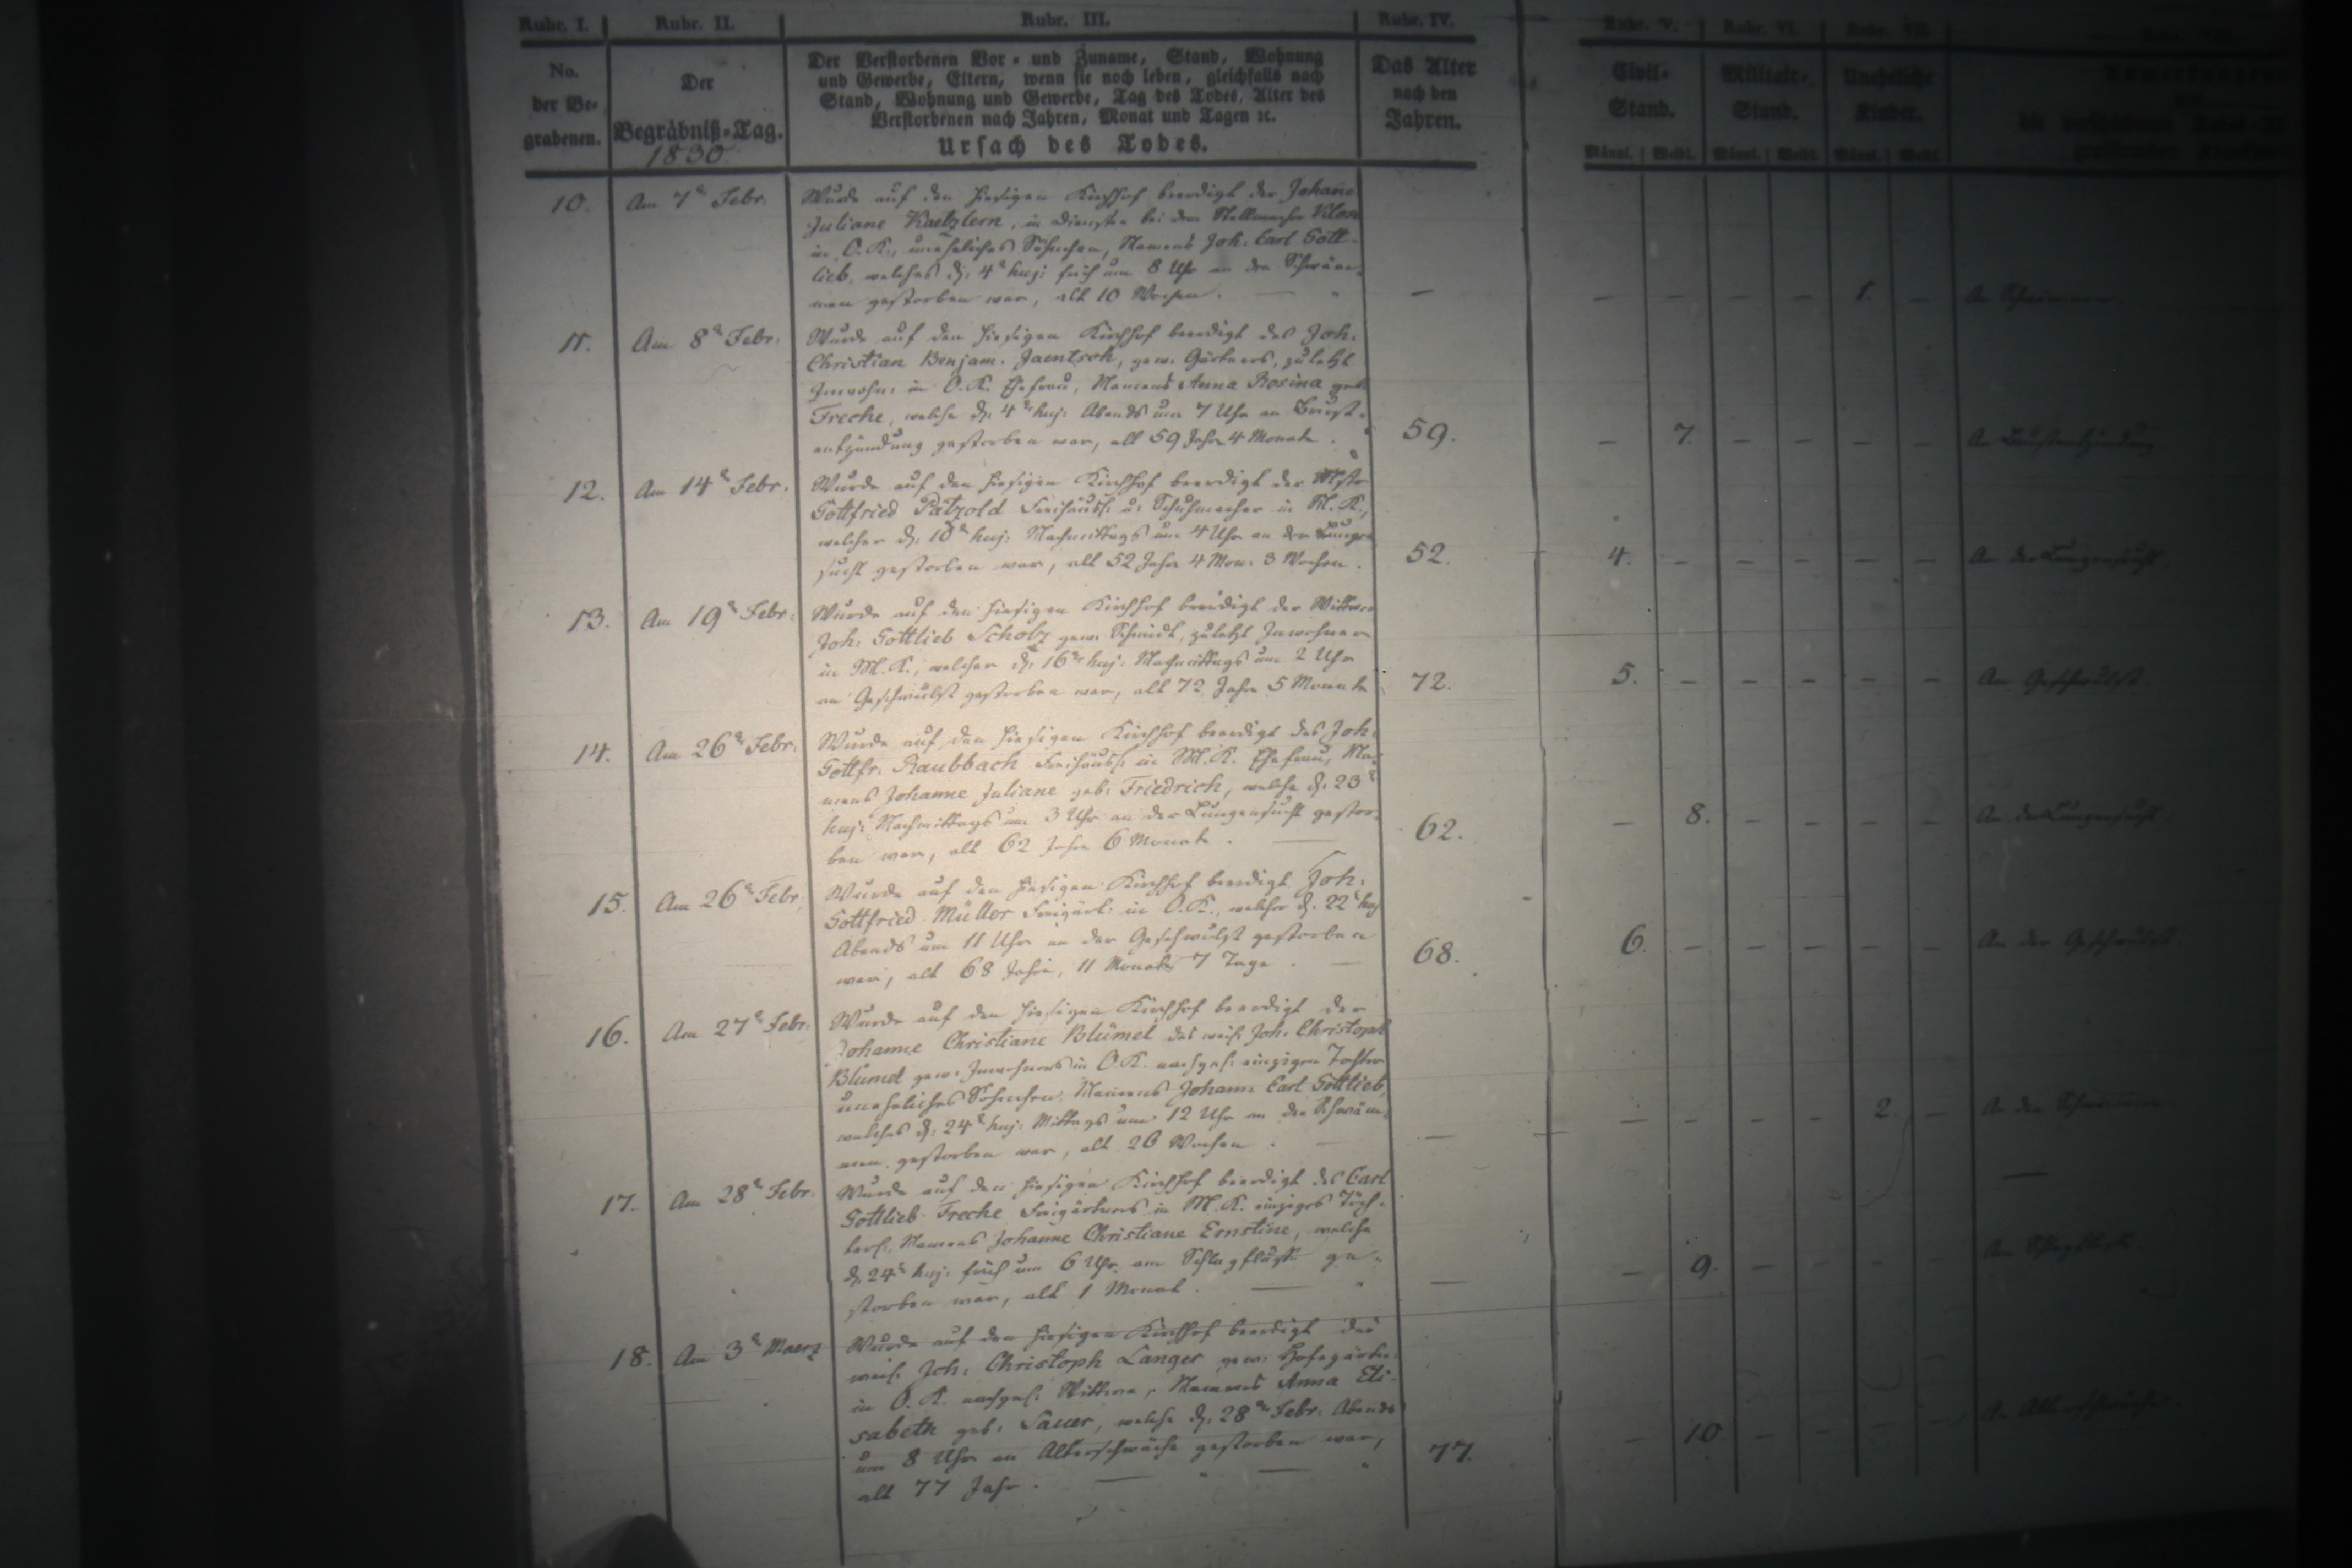 Rubr. I. Rubr. II. Rubr. III. Rubr. IV. Rubr. V. Rubr. VI. Rubr. VII.
No. der Be=grabenen.
Der Begräbniß=Tag.
1830
Der Verstorbenen Vor= und Zuname, Stand, Wohnung
und Gewerbe, Eltern, wenn sie noch leben, gleichfalls nach
Stand, Wohnung und Gewerbe, Tag des Todes, Alter des
Verstorbenen nach Jahren, Monat und Tagen ꝛc.
Ursach des Todes.
Das Alter
nach den
Jahren.
Civil=
Stand.
Militair=
Stand.
Uneheliche
Kinder.
Männl. Weibl. Männl. Weibl. Männl. Weibl.
10. Am 7t Febr. Wurde auf den hiesigen Kirchhof beerdigt der Johane
Juliane Kaetzlern, in Diensten bei dem Stellmacher Klose
in O. K., unehliches Söhnchen, Namens Joh. Carl Gott=
lieb, welches d. 4t huj: früh um 8 Uhr an den Schwäm=
men gestorben war, alt 10 Wochen. — — — — — — 1. — An Schwämmen.
11. Am 8t Febr: Wurde auf den hiesigen Kirchhof beerdigt des Joh.
Christian Benjam. Jaentsch, gew. Gärtners, zuletzt
Inwohn: in O. K. Ehefrau, Namens Anna Rosina geb.
Freche, welche d. 4t huj: Abends um 7 Uhr an Brust=
entzündung gestorben war, alt 59 Jahr 4 Monate. 59. — 7. — — — — An Brustentzündung
12. Am 14t Febr. Wurde auf den hiesigen Kirchhof beerdigt der Mstr
Gottfried Pätzold Freihäusl: u: Schuhmacher in M. K.,
welcher d. 10t huj: Nachmittags um 4 Uhr an der Lungen
sucht gestorben war, alt 52 Jahr 4 Mon: 3 Wochen. 52. 4. — — — — — An der Lungensucht.
13. Am 19t Febr: Wurde auf den hiesigen Kirchhof beerdigt der Wittwer
Joh: Gottlieb Scholz gew. Schmidt, zuletzt Inwohner
in M. K., welcher d. 16t huj: Nachmittags um 2 Uhr
an Geschwulst gestorben war, alt 72 Jahr 5 Monate 72. 5. — — — — — An Geschwulst.
14. Am 26t Febr: Wurde auf den hiesigen Kirchhof beerdigt des Joh:
Gottfr: Raubbach Freihäusl: in M. K. Ehefrau, Na=
mens Johanne Juliane geb: Friedrich, welche d. 23t
huj: Nachmittags um 3 Uhr an der Lungensucht gestor=
ben war, alt 62 Jahr 6 Monate. — 62. — 8. — — — — An der Lungensucht.
15. Am 26t Febr. Wurde auf den hiesigen Kirchhof beerdigt Joh:
Gottfried Müller Freigärt: in O. K., welcher d. 22t huj
Abends um 11 Uhr an der Geschwulst gestorben
war, alt 68 Jahre, 11 Monate 7 Tage. — 68. 6. — — — — — An der Geschwulst.
16. Am 27t Febr: Wurde auf den hiesigen Kirchhof beerdigt der
Johanne Christiane Blümel des weil: Joh. Christoph
Blümel gew. Inwohners in O. K. nachgel: einzigen Tochter
unehliches Söhnchen, Namens Johann Carl Gottlieb,
welches d: 24t huj: Mittags um 12 Uhr an den Schwäm=
men gestorben war, alt 26 Wochen. — — — — — — 2. — An den Schwämmen.
17. Am 28t Febr: Wurde auf den hiesigen Kirchhof beerdigt des Carl
Gottlieb Freche Freigärtners in M. K. einziges Töch=
terl: Namens Johanne Christiane Ernstine, welche
d. 24t huj: früh um 6 Uhr am Schlagfluss ge=
storben war, alt 1 Monat. — — — 9. — — — — An Schlagfluss.
18. Am 3t Maerz Wurde auf den hiesigen Kirchhof beerdigt des
weil: Joh: Christoph Langer gew: Hofegärtn:
in O. K. nachgel: Wittwe, Namens Anna Eli=
sabeth geb: Sauer, welche d: 28t Febr: Abends
um 8 Uhr an Altersschwäche gestorben war,
alt 77 Jahr. — — 77. — 10 — — — — An Altersschwäche.